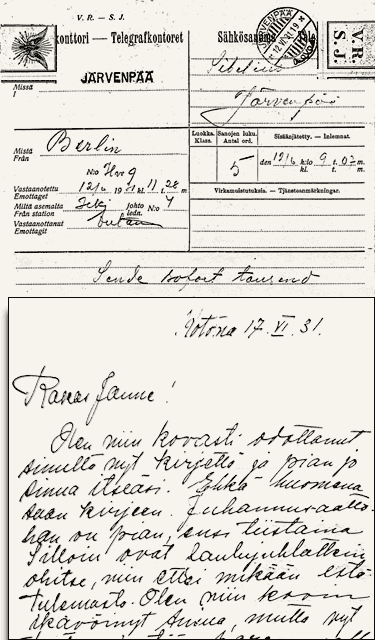 V. R. — S. J.
konttori — Telegrafkontoret
Sähkösanoma
JÄRVENPÄÄ
JÄRVENPÄÄ
V.R.
S.J.
Missä
I
Sibelius
Järvenpää
Mistä
Från
Berlin
Luokka.
Klass.
Sanojen luku.
Antal ord.
Sisäänjätetty. — Inlemnat.
5
den 12/6 k:lo 9 t. 02 m.
kl.
N:o
Vastaanotettu
Emottaget
12/6 1931 kl. 11 t. 28 m
Miltä asemalta
Från station
Hki
johto
ledn.
N:o 4
Vastaanottanut
Emottagit
Virkamuistutuksia. — Tjänsteanmärkningar.
Sende sofort tausend
Kotona 17.VI.31.
Rakas Janne!
Olen niin kovasti odottanut
sinulta nyt kirjettä ja pian jo
sinua itseäsi. Ehkä huomenna
saan kirjeen. Juhannusaatto-
han on pian, ensi tiistaina
Silloin ovat laulujuhlatkin
ohitse, niin ettei mikään estä
tulemasta. Olen niin kovin
ikävöinyt sinua, mutta nyt